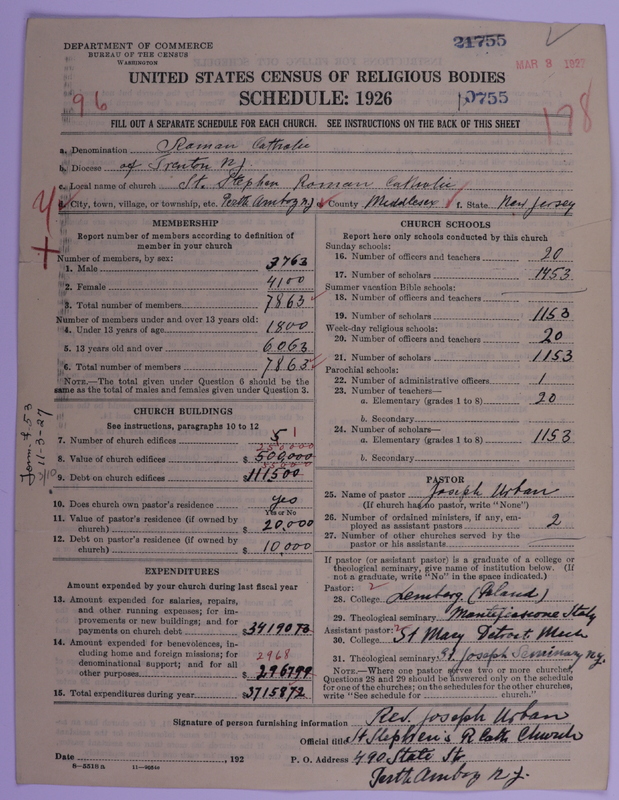 DEPARTMENT OF COMMERCE
BUREAU OF THE CENSUS
WASHINGTON
21755
MAR 8 1927
UNITED STATES CENSUS OF RELIGIOUS BODIES
SCHEDULE: 1926
10755
96
178
FILL OUT A SEPARATE SCHEDULE FOR EACH CHURCH. SEE INSTRUCTIONS ON THE BACK OF THIS SHEET
a. Denomination Roman Catholic
b. Diocese of Trenton N.J.
c. Local name of church St. Stephen Roman Catholic
d. City, town, village, or township, etc. Perth Amboy N.J. e. County Middlesex f. State New Jersey
MEMBERSHIP
Report number of members according to definition of member in your church
Number of members, by sex:
1. Male 3763
2. Female 4100
3. Total number of members 7863
Number of members under and over 13 years old:
4. Under 13 years of age 1800
5. 13 years old and over 6063
6. Total number of members 7863
NOTE.—The total given under Question 6 should be the
same as the total of males and females given under Question 3.
CHURCH BUILDINGS
See instructions, paragraphs 10 to 12
7. Number of church edifices 5 1
8. Value of church edifices $ 500,000
9. Debt on church edifices $ 111500
10. Does church own pastor's residence yes
Yes or No
11. Value of pastor's residence (if owned by
church) $ 20,000
12. Debt on pastor's residence (if owned by
church) $ 10,000
EXPENDITURES
Amount expended by your church during last fiscal year
13. Amount expended for salaries, repairs,
and other running expenses; for im-
provements or new buildings; and for
payments on church debt $ 3419073
14. Amount expended for benevolences, in-
cluding home and foreign missions; for 2968
denominational support; and for all
other purposes $ 296799
15. Total expenditures during year $ 3715872
CHURCH SCHOOLS
Report here only schools conducted by this church
Sunday schools:
16. Number of officers and teachers 20
17. Number of scholars 1453
Summer vacation Bible schools:
18. Number of officers and teachers
19. Number of scholars 1153
Week-day religious schools:
20. Number of officers and teachers 20
21. Number of scholars 1153
Parochial schools:
22. Number of administrative officers 1
23. Number of teachers—
a. Elementary (grades 1 to 8) 20
b. Secondary
24. Number of scholars—
a. Elementary (grades 1 to 8) 1153
b. Secondary
PASTOR
25. Name of pastor Joseph Urban
(If church has no pastor, write "None")
26. Number of ordained ministers, if any, em-
ployed as assistant pastors 2
27. Number of other churches served by the
pastor or his assistants
If pastor (or assistant pastor) is a graduate of a college or
theological seminary, give name of institution below. (If
not a graduate, write "No" in the space indicated.)
Pastor: 2
28. College Lemberg (Poland)
29. Theological seminary Montefiascone Italy
Assistant pastor: 2
30. College St Mary Detroit Mich
31. Theological seminary St. Joseph Seminary N.Y.
NOTE.—Where one pastor serves two or more churches,
Questions 28 and 29 should be answered only on the schedule
for one of the churches; on the schedules for the other churches,
write "See schedule for church."
Signature of person furnishing information Rev. Joseph Urban
Official title St Stephen's R Cath Church
Date , 192 P. O. Address 490 State St.
Perth Amboy N.J.
8—5518 a
Form # 53
11-3-27